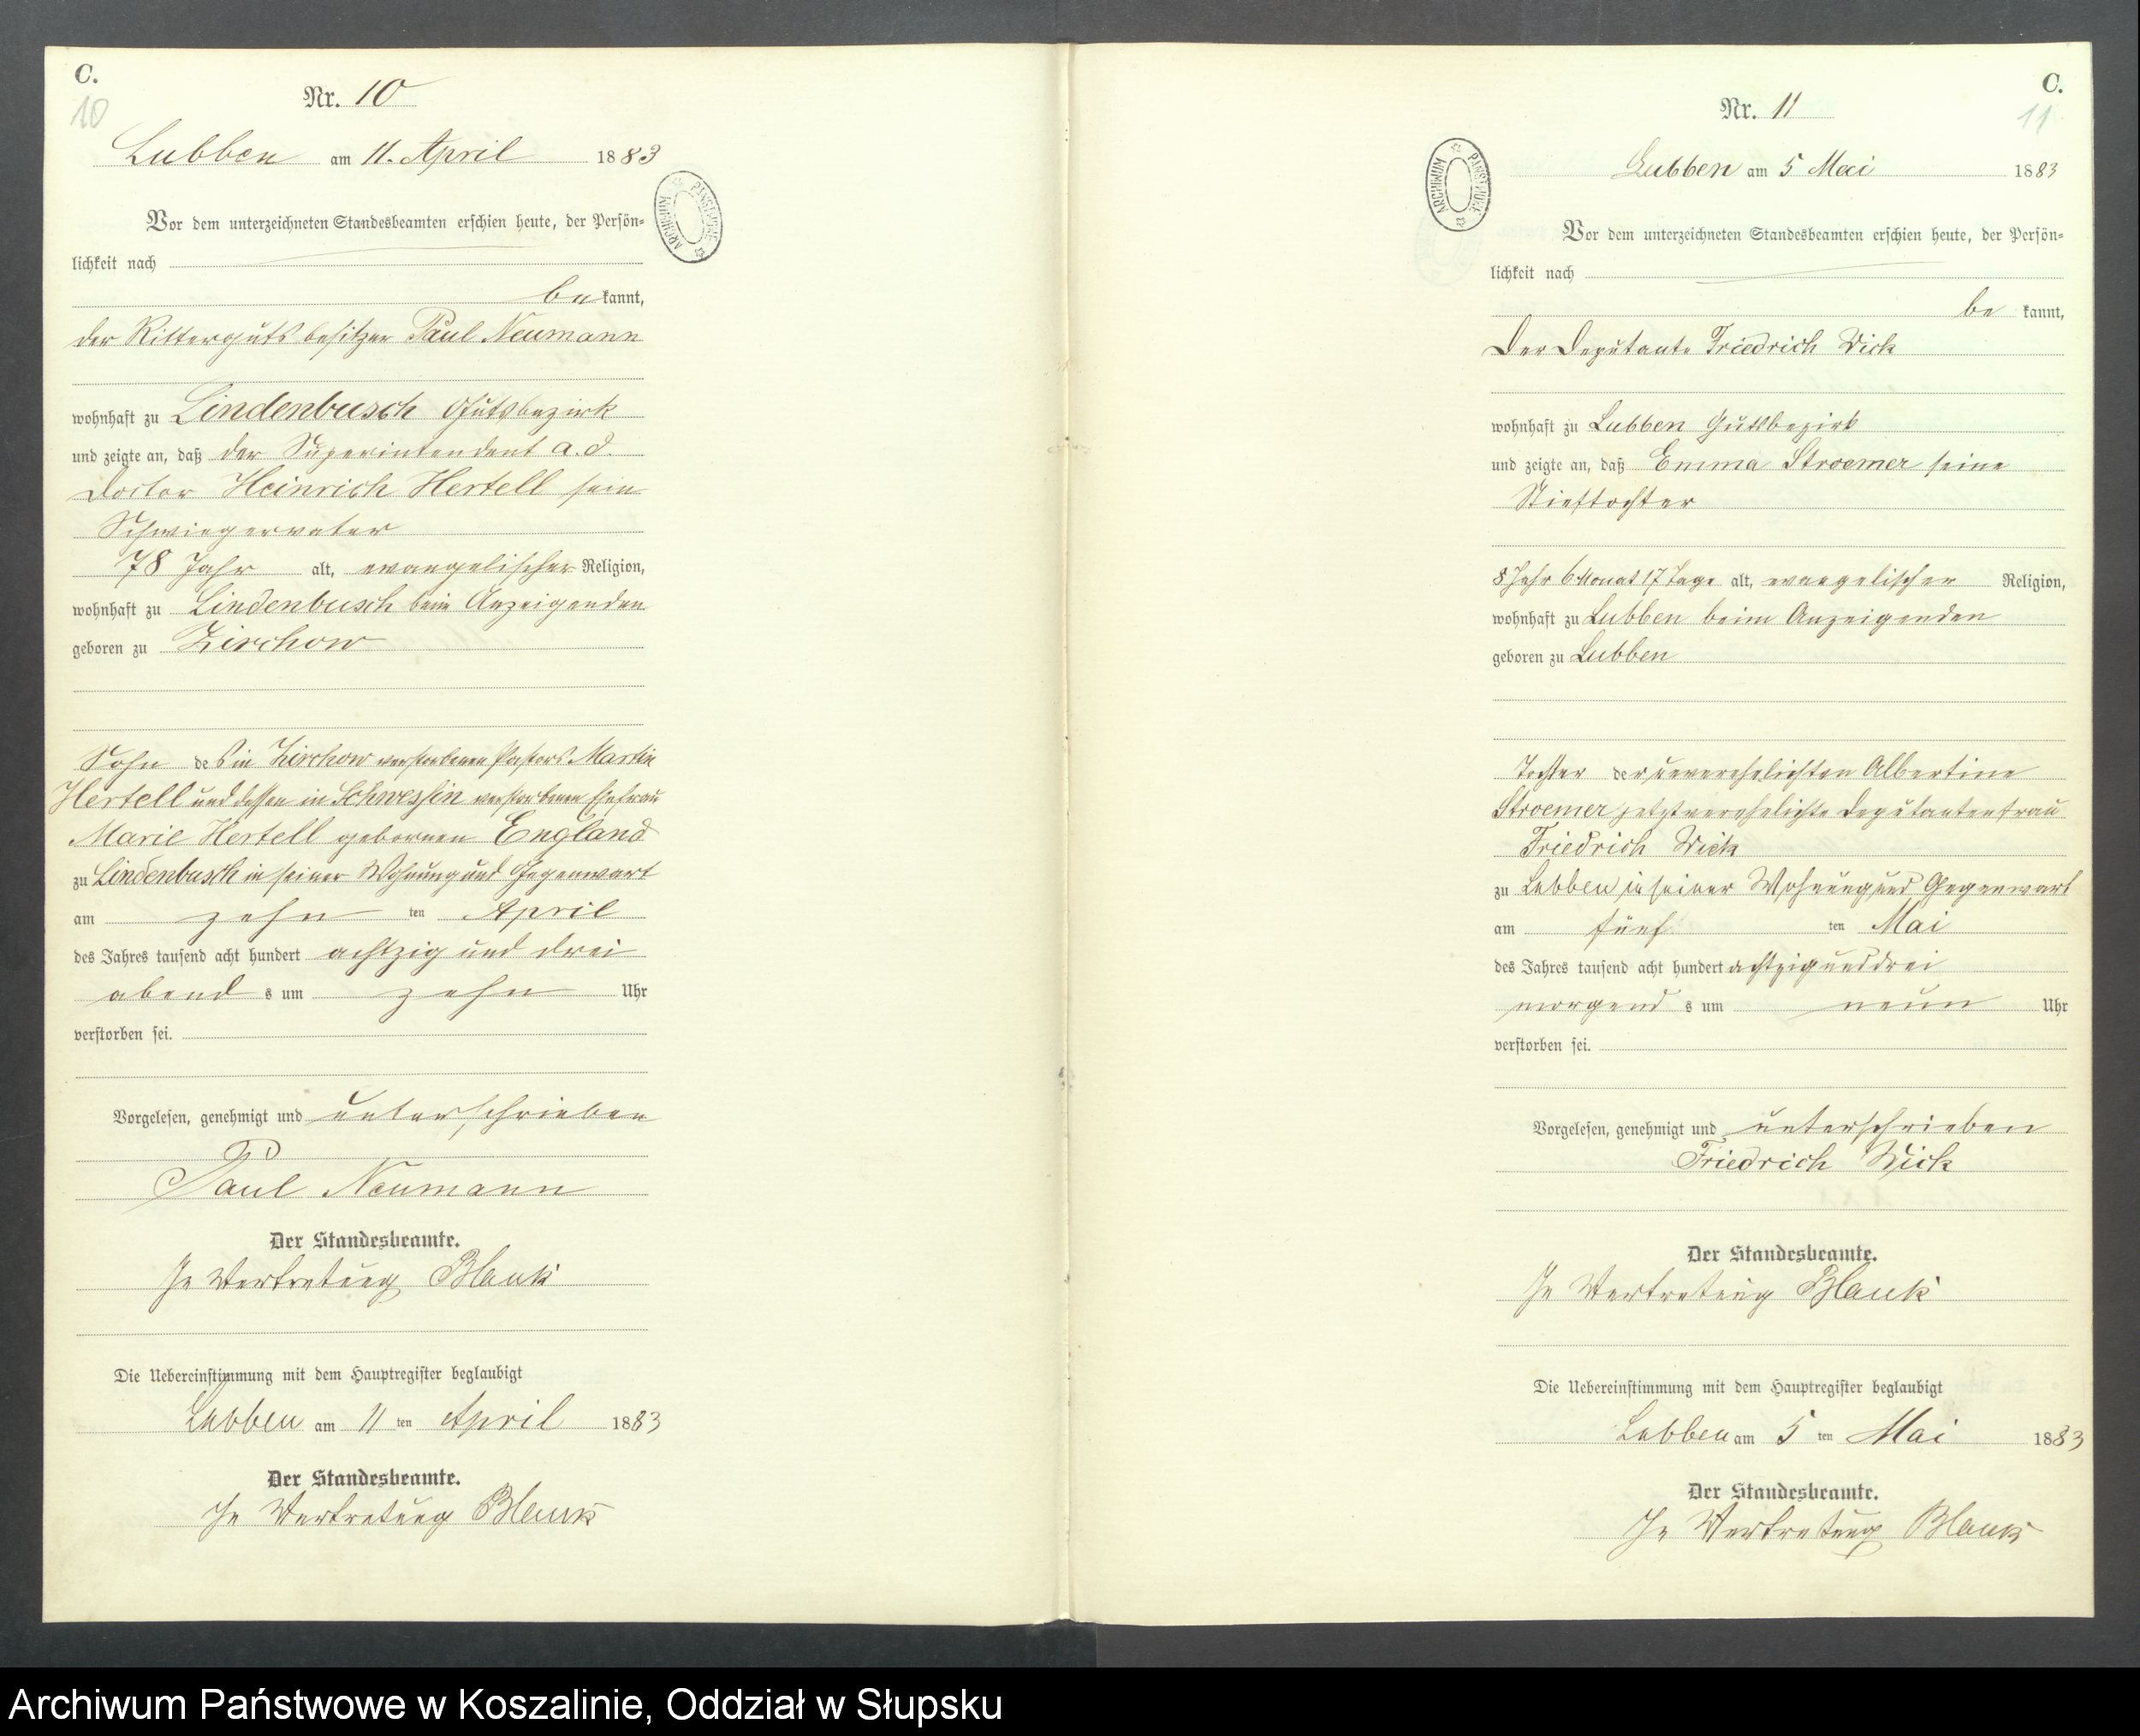 C.
10
Nr. 10
Lubben am 11. April 1883
ARCHIWUM PAŃSTWOWE
Vor dem unterzeichneten Standesbeamten erschien heute, der Persön=
lichkeit nach
be kannt,
der Rittergutsbesitzer Paul Neumann
wohnhaft zu Lindenbusch Gutsbezirk
und zeigte an, daß der Superintendent a. d.
Doctor Heinrich Hertell sein
Schwiegervater
78 Jahr alt, evangelischer Religion,
wohnhaft zu Lindenbusch beim Anzeigenden
geboren zu Zirchow
Sohn des in Zirchow verstorbenen Pastors Martin
Hertell und dessen in Schwessin verstorbenen Ehefrau
Marie Hertell gebornen England
zu Lindenbusch in seiner Wohnung und Gegenwart
am zehn ten April
des Jahres tausend acht hundert achtzig und drei
abend s um zehn Uhr
verstorben sei.
Vorgelesen, genehmigt und unterschrieben
Paul Neumann
Der Standesbeamte.
In Vertretung Blank
Die Uebereinstimmung mit dem Hauptregister beglaubigt
Lubben am 11 ten April 1883
Der Standesbeamte.
In Vertretung Blank
C.
11
Nr. 11
Lubben am 5 Mai 1883
ARCHIWUM PAŃSTWOWE
Vor dem unterzeichneten Standesbeamten erschien heute, der Persön=
lichkeit nach
be kannt,
Der Deputante Friedrich Wick
wohnhaft zu Lubben Gutsbezirk
und zeigte an, daß Emma Stroemer seine
Stieftochter
8 Jahr 6 Monat 17 Tage alt, evangelischer Religion,
wohnhaft zu Lubben beim Anzeigenden
geboren zu Lubben
Tochter der unverehelichten Albertine
Stroemer jetzt verehelichte Deputantenfrau
Friedrich Wick
zu Lubben in seiner Wohnung und Gegenwart
am fünf ten Mai
des Jahres tausend acht hundert achtzig und drei
morgend s um neun Uhr
verstorben sei.
Vorgelesen, genehmigt und unterschrieben
Friedrich Wick
Der Standesbeamte.
In Vertretung Blank
Die Uebereinstimmung mit dem Hauptregister beglaubigt
Lubben am 5 ten Mai 1883
Der Standesbeamte.
In Vertretung Blank
Archiwum Państwowe w Koszalinie, Oddział w Słupsku